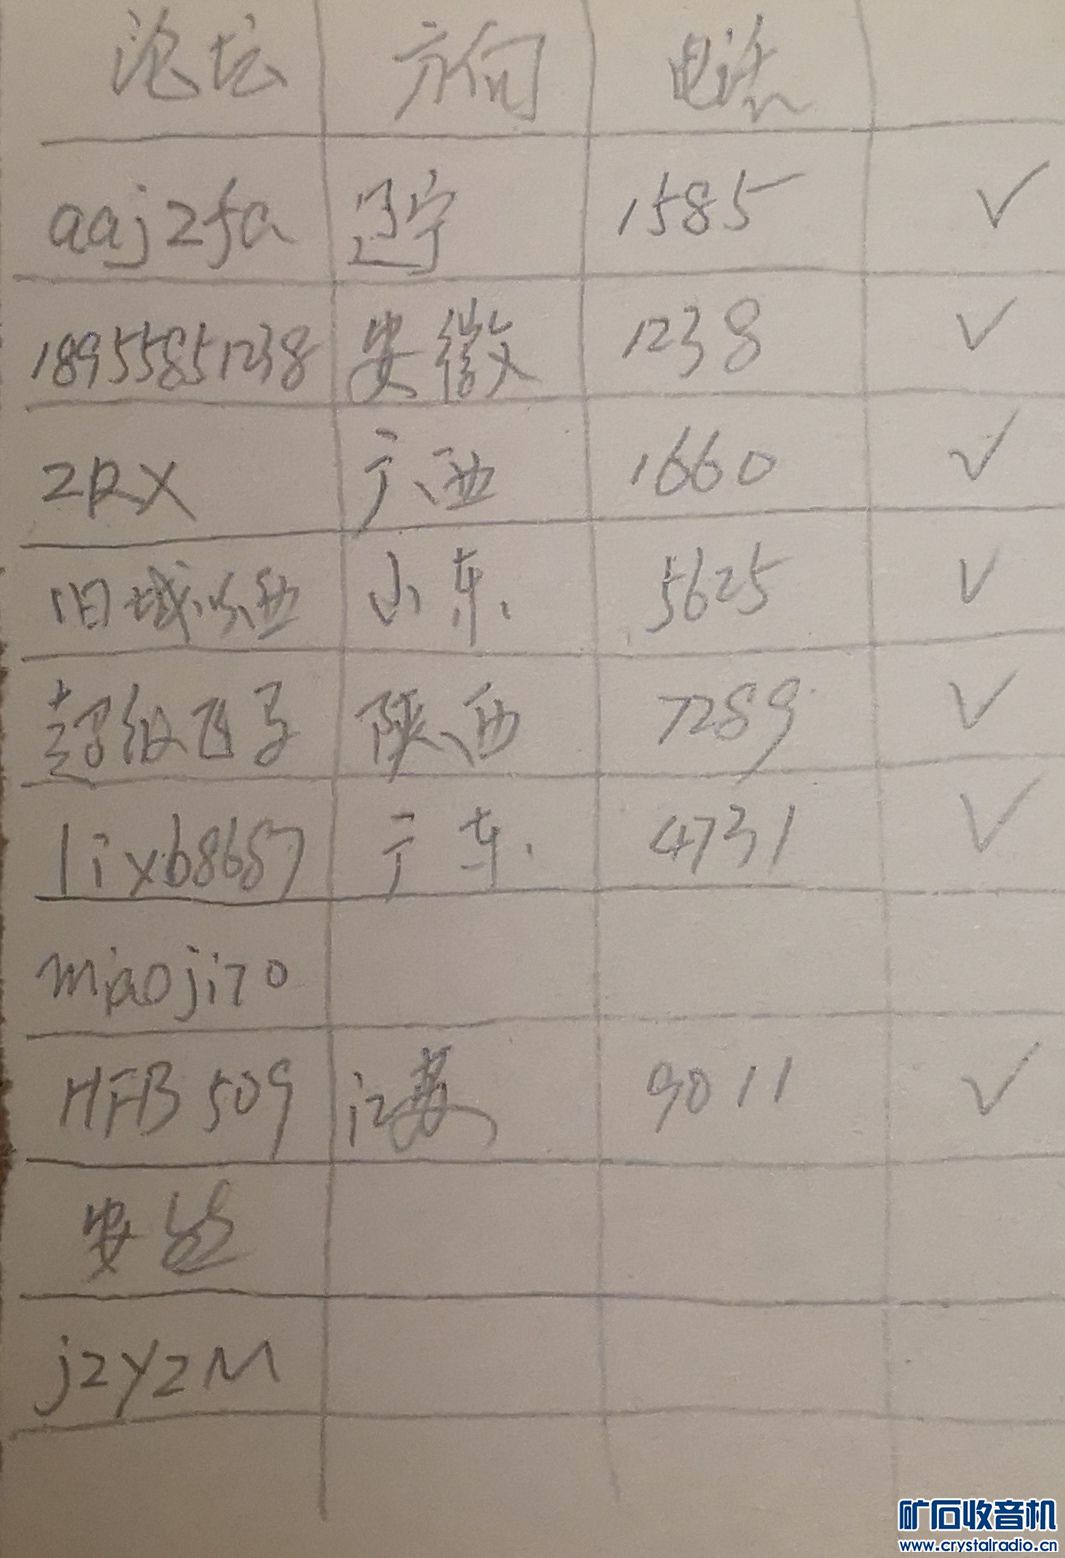 论坛 方向 电话
aaj2fa 辽宁 1585 ✓
18955851238 安徽 1238 ✓
ZRX 广西 1660 ✓
旧城以西 山东 5625 ✓
超级飞子 陕西 7289 ✓
lixb8687 广东 4731 ✓
miaoji70
HFB509 江苏 9011 ✓
安
jzyzM
矿石收音机
www.crystalradio.cn